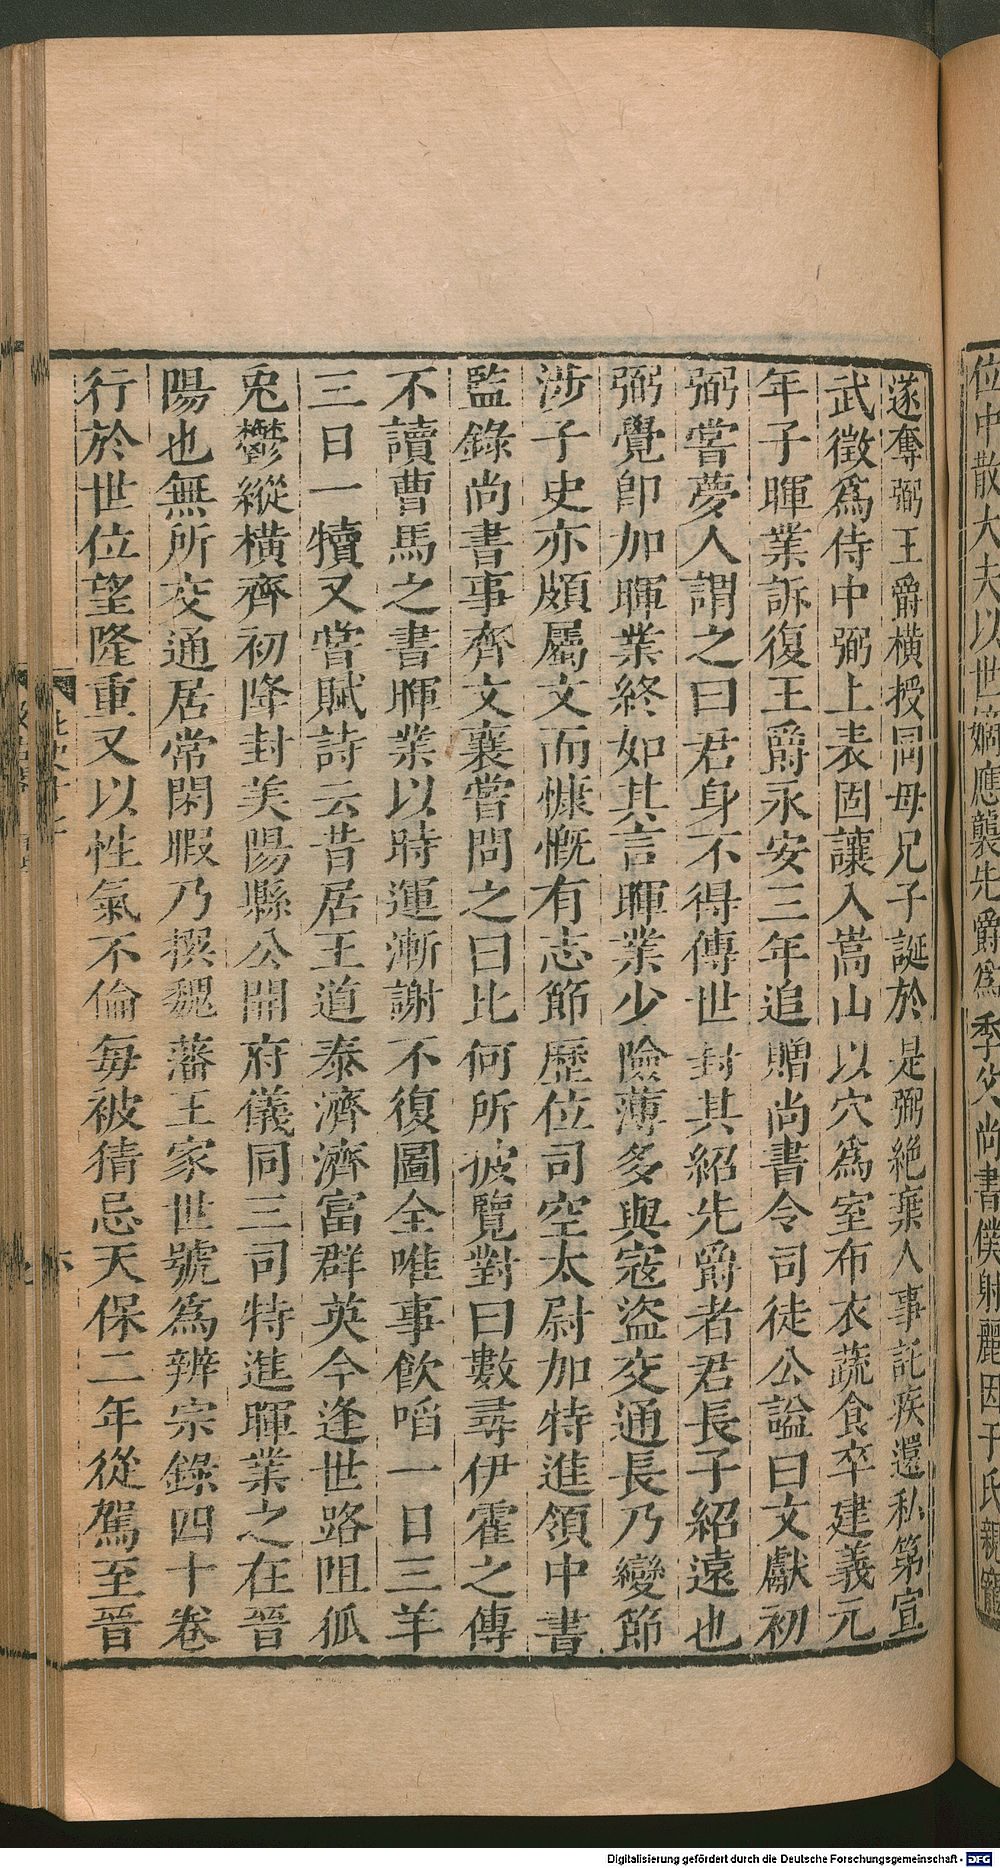 位中散大夫以世嫡應襲先爵爲季父尚書僕射麗因于氏親寵
遂奪弼王爵橫授同母兄子誕於是弼絶棄人事託疾還私第宣
武徵爲侍中弼上表固讓入嵩山以穴爲室布衣蔬食卒建義元
年子暉業訴復王爵永安三年追贈尚書令司徒公謚曰文獻初
弼嘗夢人謂之曰君身不得傳世封其紹先爵者君長子紹遠也
弼覺卽加暉業終如其言暉業少險薄多與寇盜交通長乃變節
涉子史亦頗屬文而慷慨有志節歷位司空太尉加特進領中書
監錄尚書事齊文襄嘗問之曰比何所披覽對曰數尋伊霍之傳
不讀曹馬之書暉業以時運漸謝不復圖全唯事飲啗一日三羊
三日一犢又嘗賦詩云昔居王道泰濟濟富群英今逢世路阻狐
兎鬱縱橫齊初降封美陽縣公開府儀同三司特進暉業之在晉
陽也無所交通居常閑暇乃撰魏藩王家世號爲辨宗錄四十卷
行於世位望隆重又以性氣不倫每被猜忌天保二年從駕至晉
六
Digitalisierung gefördert durch die Deutsche Forschungsgemeinschaft - DFG